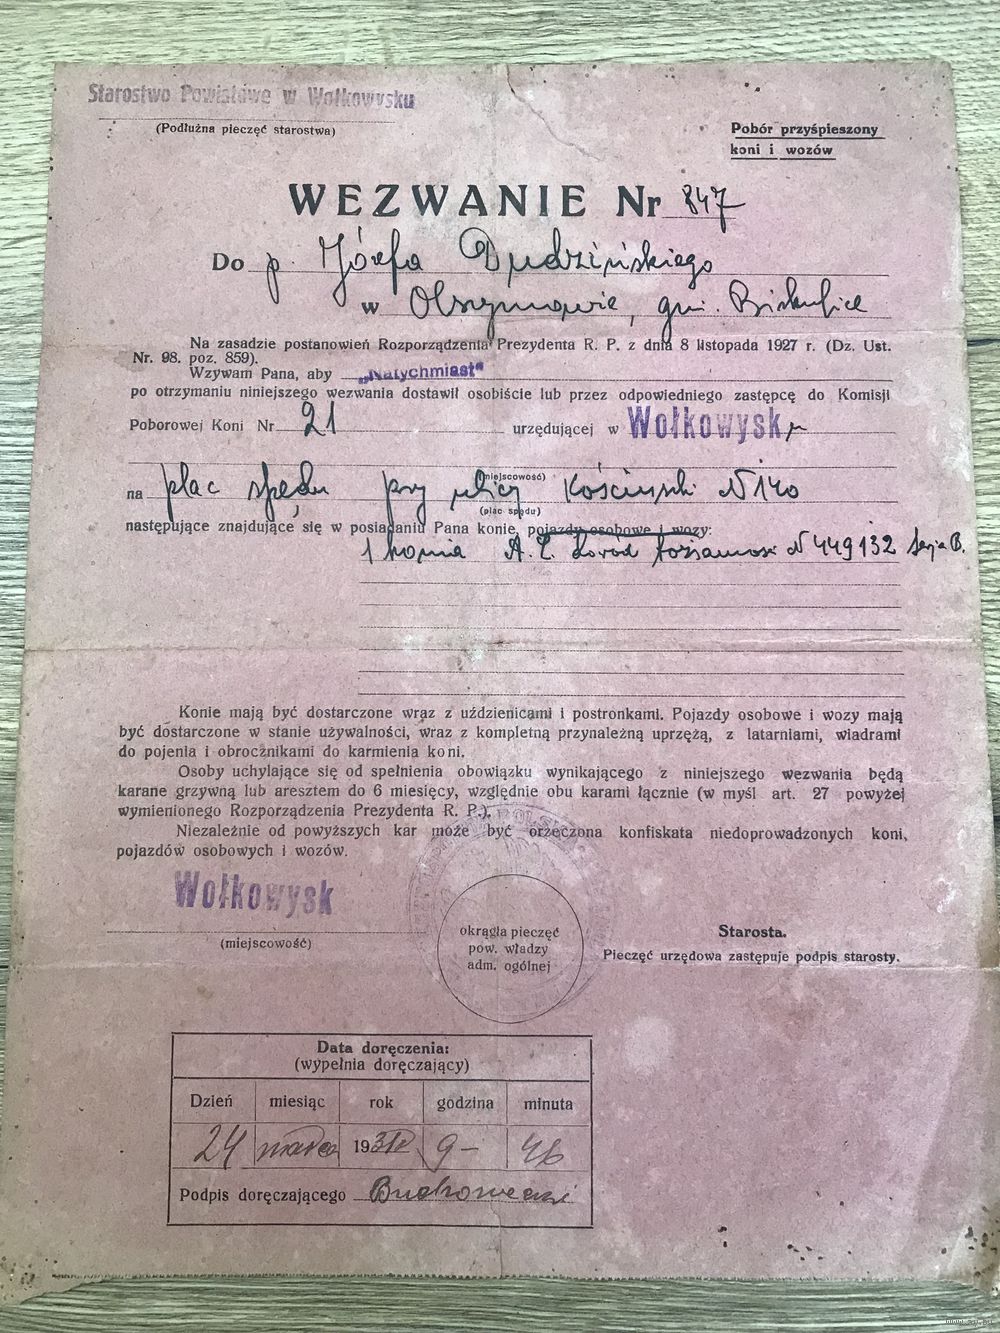 Starostwo Powiatowe w Wołkowysku
(Podłużna pieczęć starostwa)
Pobór przyśpieszony
koni i wozów
WEZWANIE Nr 847
Do p. Józefa Dudzińskiego
w Olszymowie, gm. Biskupice
Na zasadzie postanowień Rozporządzenia Prezydenta R. P. z dnia 8 listopada 1927 r. (Dz. Ust.
Nr. 98. poz. 859).
Wzywam Pana, aby „Natychmiast"
po otrzymaniu niniejszego wezwania dostawił osobiście lub przez odpowiedniego zastępcę do Komisji
Poborowej Koni Nr 21 urzędującej w Wołkowysku
(miejscowość)
na plac spędu przy ulicy Kościuszki N 140
(plac spędu)
następujące znajdujące się w posiadaniu Pana konie, pojazdy osobowe i wozy:
1 konia N 449132 Serja B.
Konie mają być dostarczone wraz z uździenicami i postronkami. Pojazdy osobowe i wozy mają
być dostarczone w stanie używalności, wraz z kompletną przynależną uprzężą, z latarniami, wiadrami
do pojenia i obrocznikami do karmienia koni.
Osoby uchylające się od spełnienia obowiązku wynikającego z niniejszego wezwania będą
karane grzywną lub aresztem do 6 miesięcy, względnie obu karami łącznie (w myśl art. 27 powyżej
wymienionego Rozporządzenia Prezydenta R. P.).
Niezależnie od powyższych kar może być orzeczona konfiskata niedoprowadzonych koni,
pojazdów osobowych i wozów.
Wołkowysk
(miejscowość)
okrągła pieczęć
pow. władzy
adm. ogólnej
Starosta.
Pieczęć urzędowa zastępuje podpis starosty.
Data doręczenia:
(wypełnia doręczający)
Dzień miesiąc rok godzina minuta
24 marca 193 9- 46
Podpis doręczającego